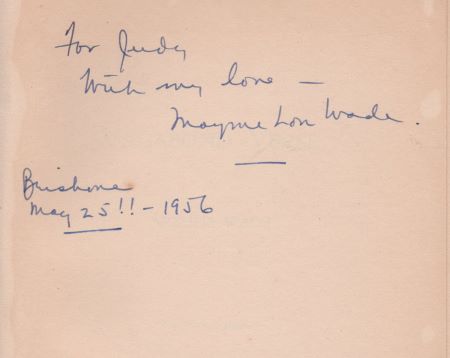 For Judy
With my love —
Mayme Lon Wade.
Brisbane
May 25!! - 1956